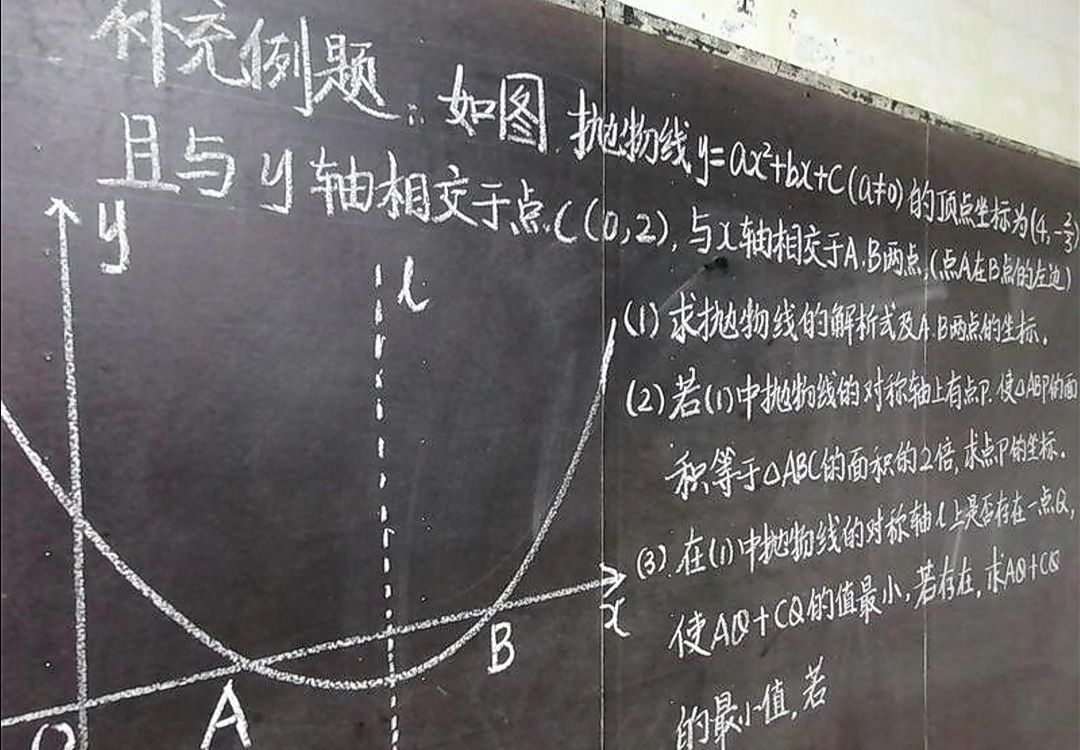 补充例题：如图 抛物线y=ax²+bx+c(a≠0)的顶点坐标为(4,-2/3)
且与y轴相交于点C(0,2),与x轴相交于A.B两点,(点A在B点的左边)
(1)求抛物线的解析式及A.B两点的坐标.
(2)若(1)中抛物线的对称轴上有点P.使△ABP的面
积等于△ABC的面积的2倍,求点P的坐标.
(3).在(1)中抛物线的对称轴l上是否存在一点Q,
使AQ+CQ的值最小,若存在,求AQ+CQ
的最小值,若
y
l
x
O
A
B